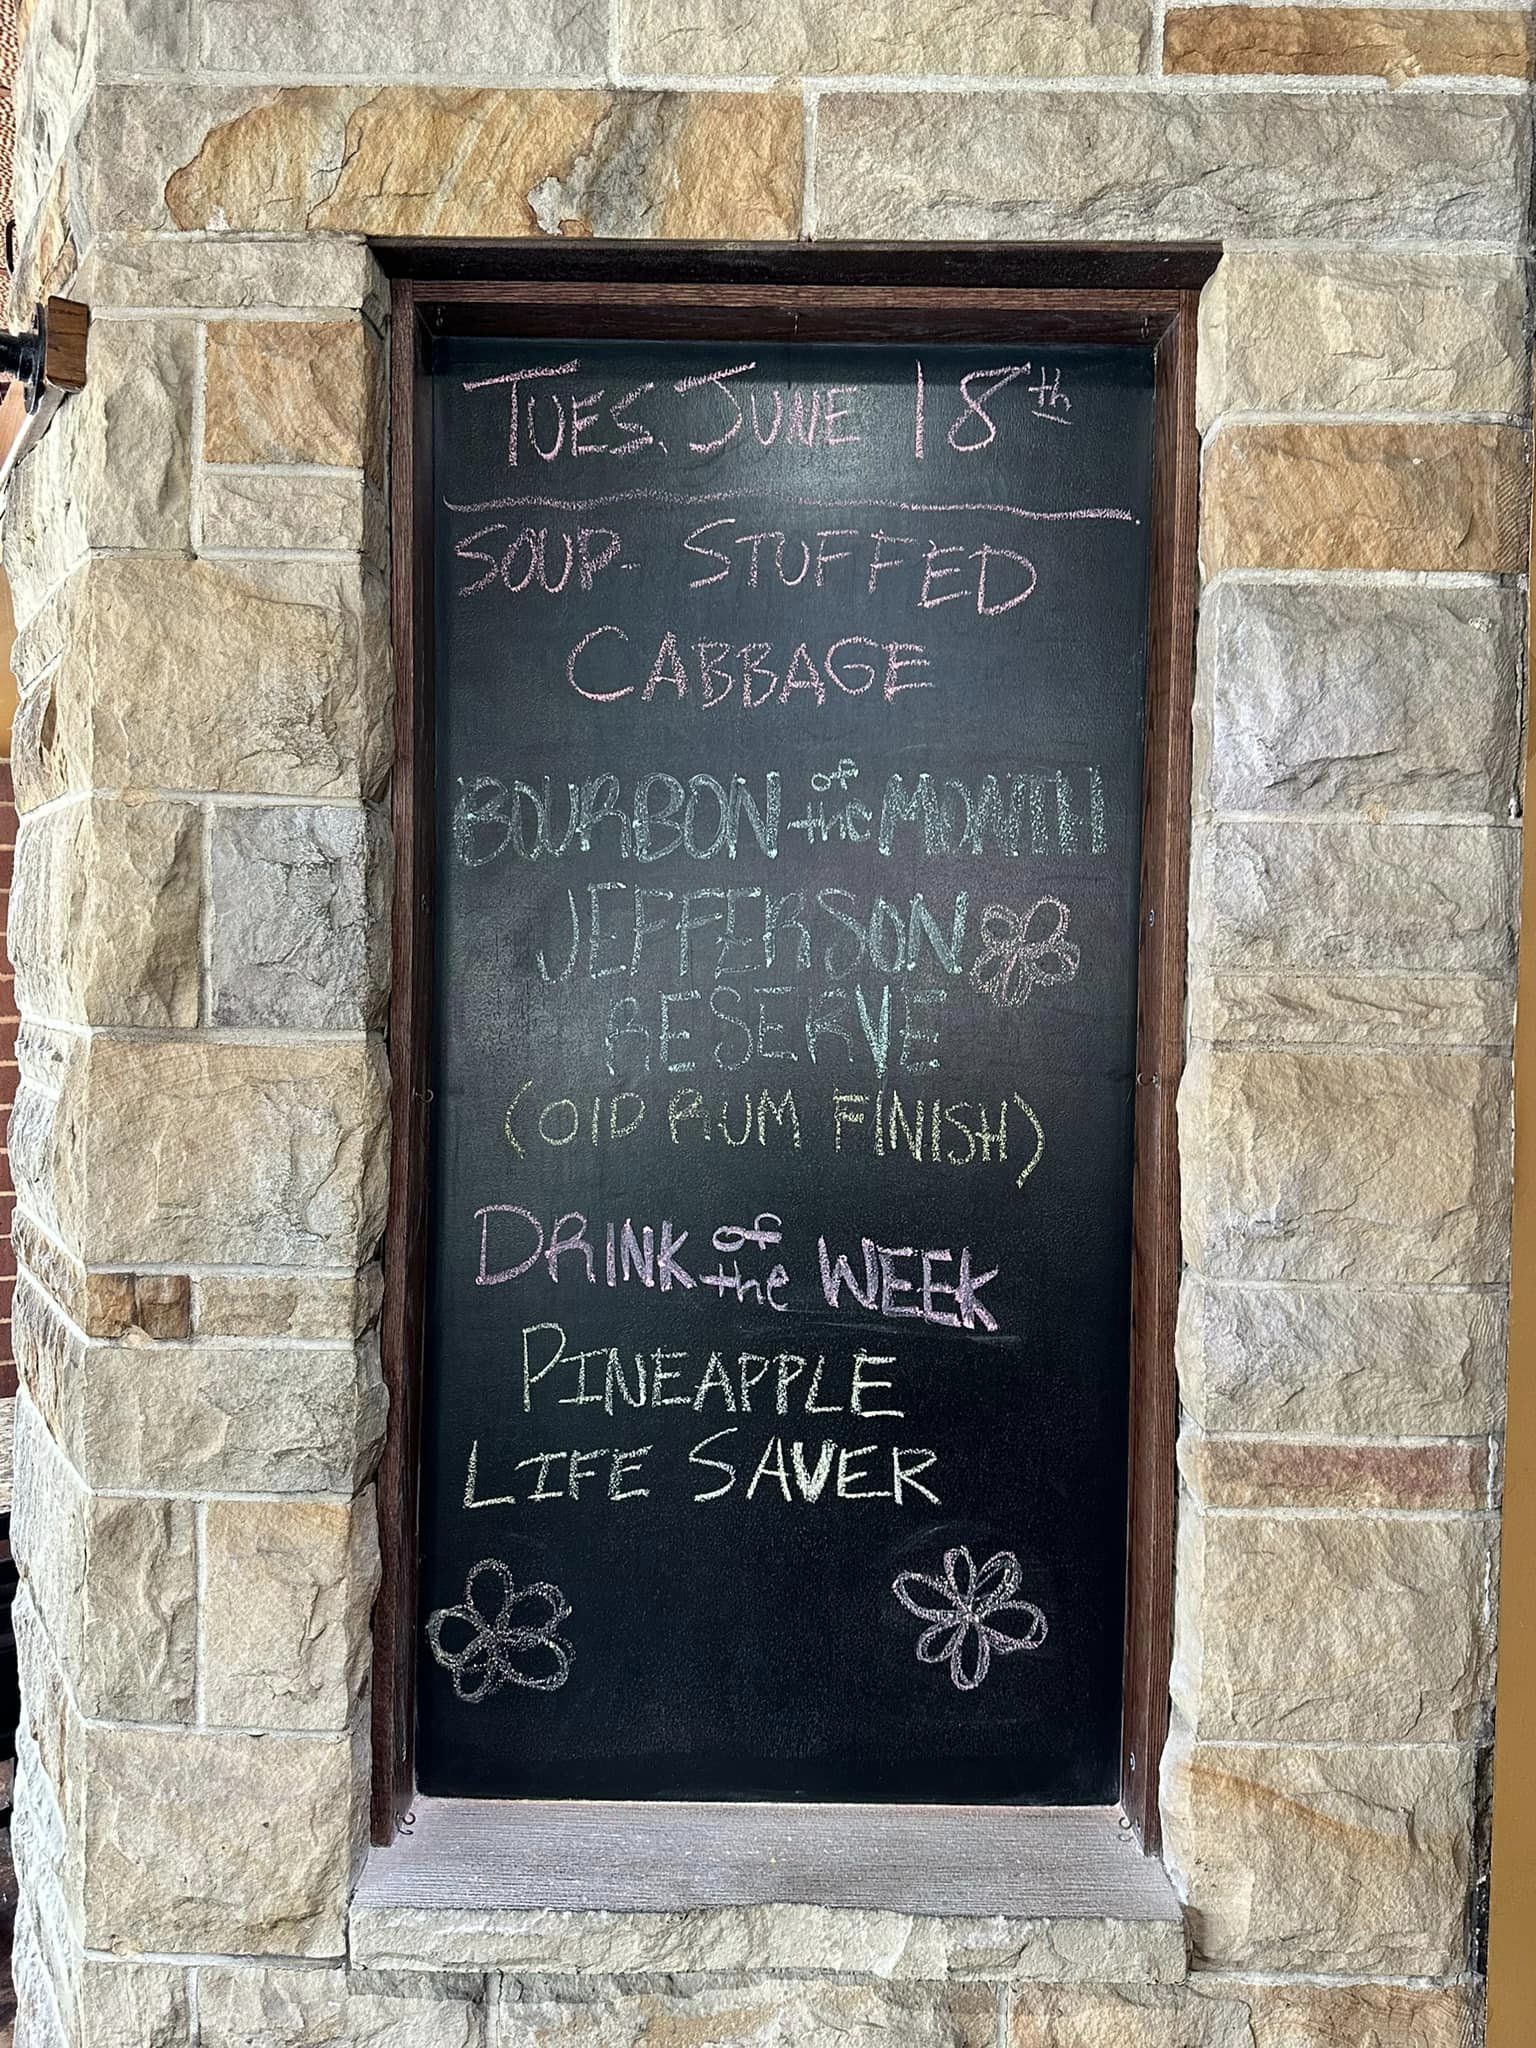 TUES. JUNE 18th
SOUP- STUFFED
CABBAGE
BOURBON of the MONTH
JEFFERSON
RESERVE
(OlD RUM FINISH)
DRINK of the WEEK
PINEAPPLE
LIFE SAVER